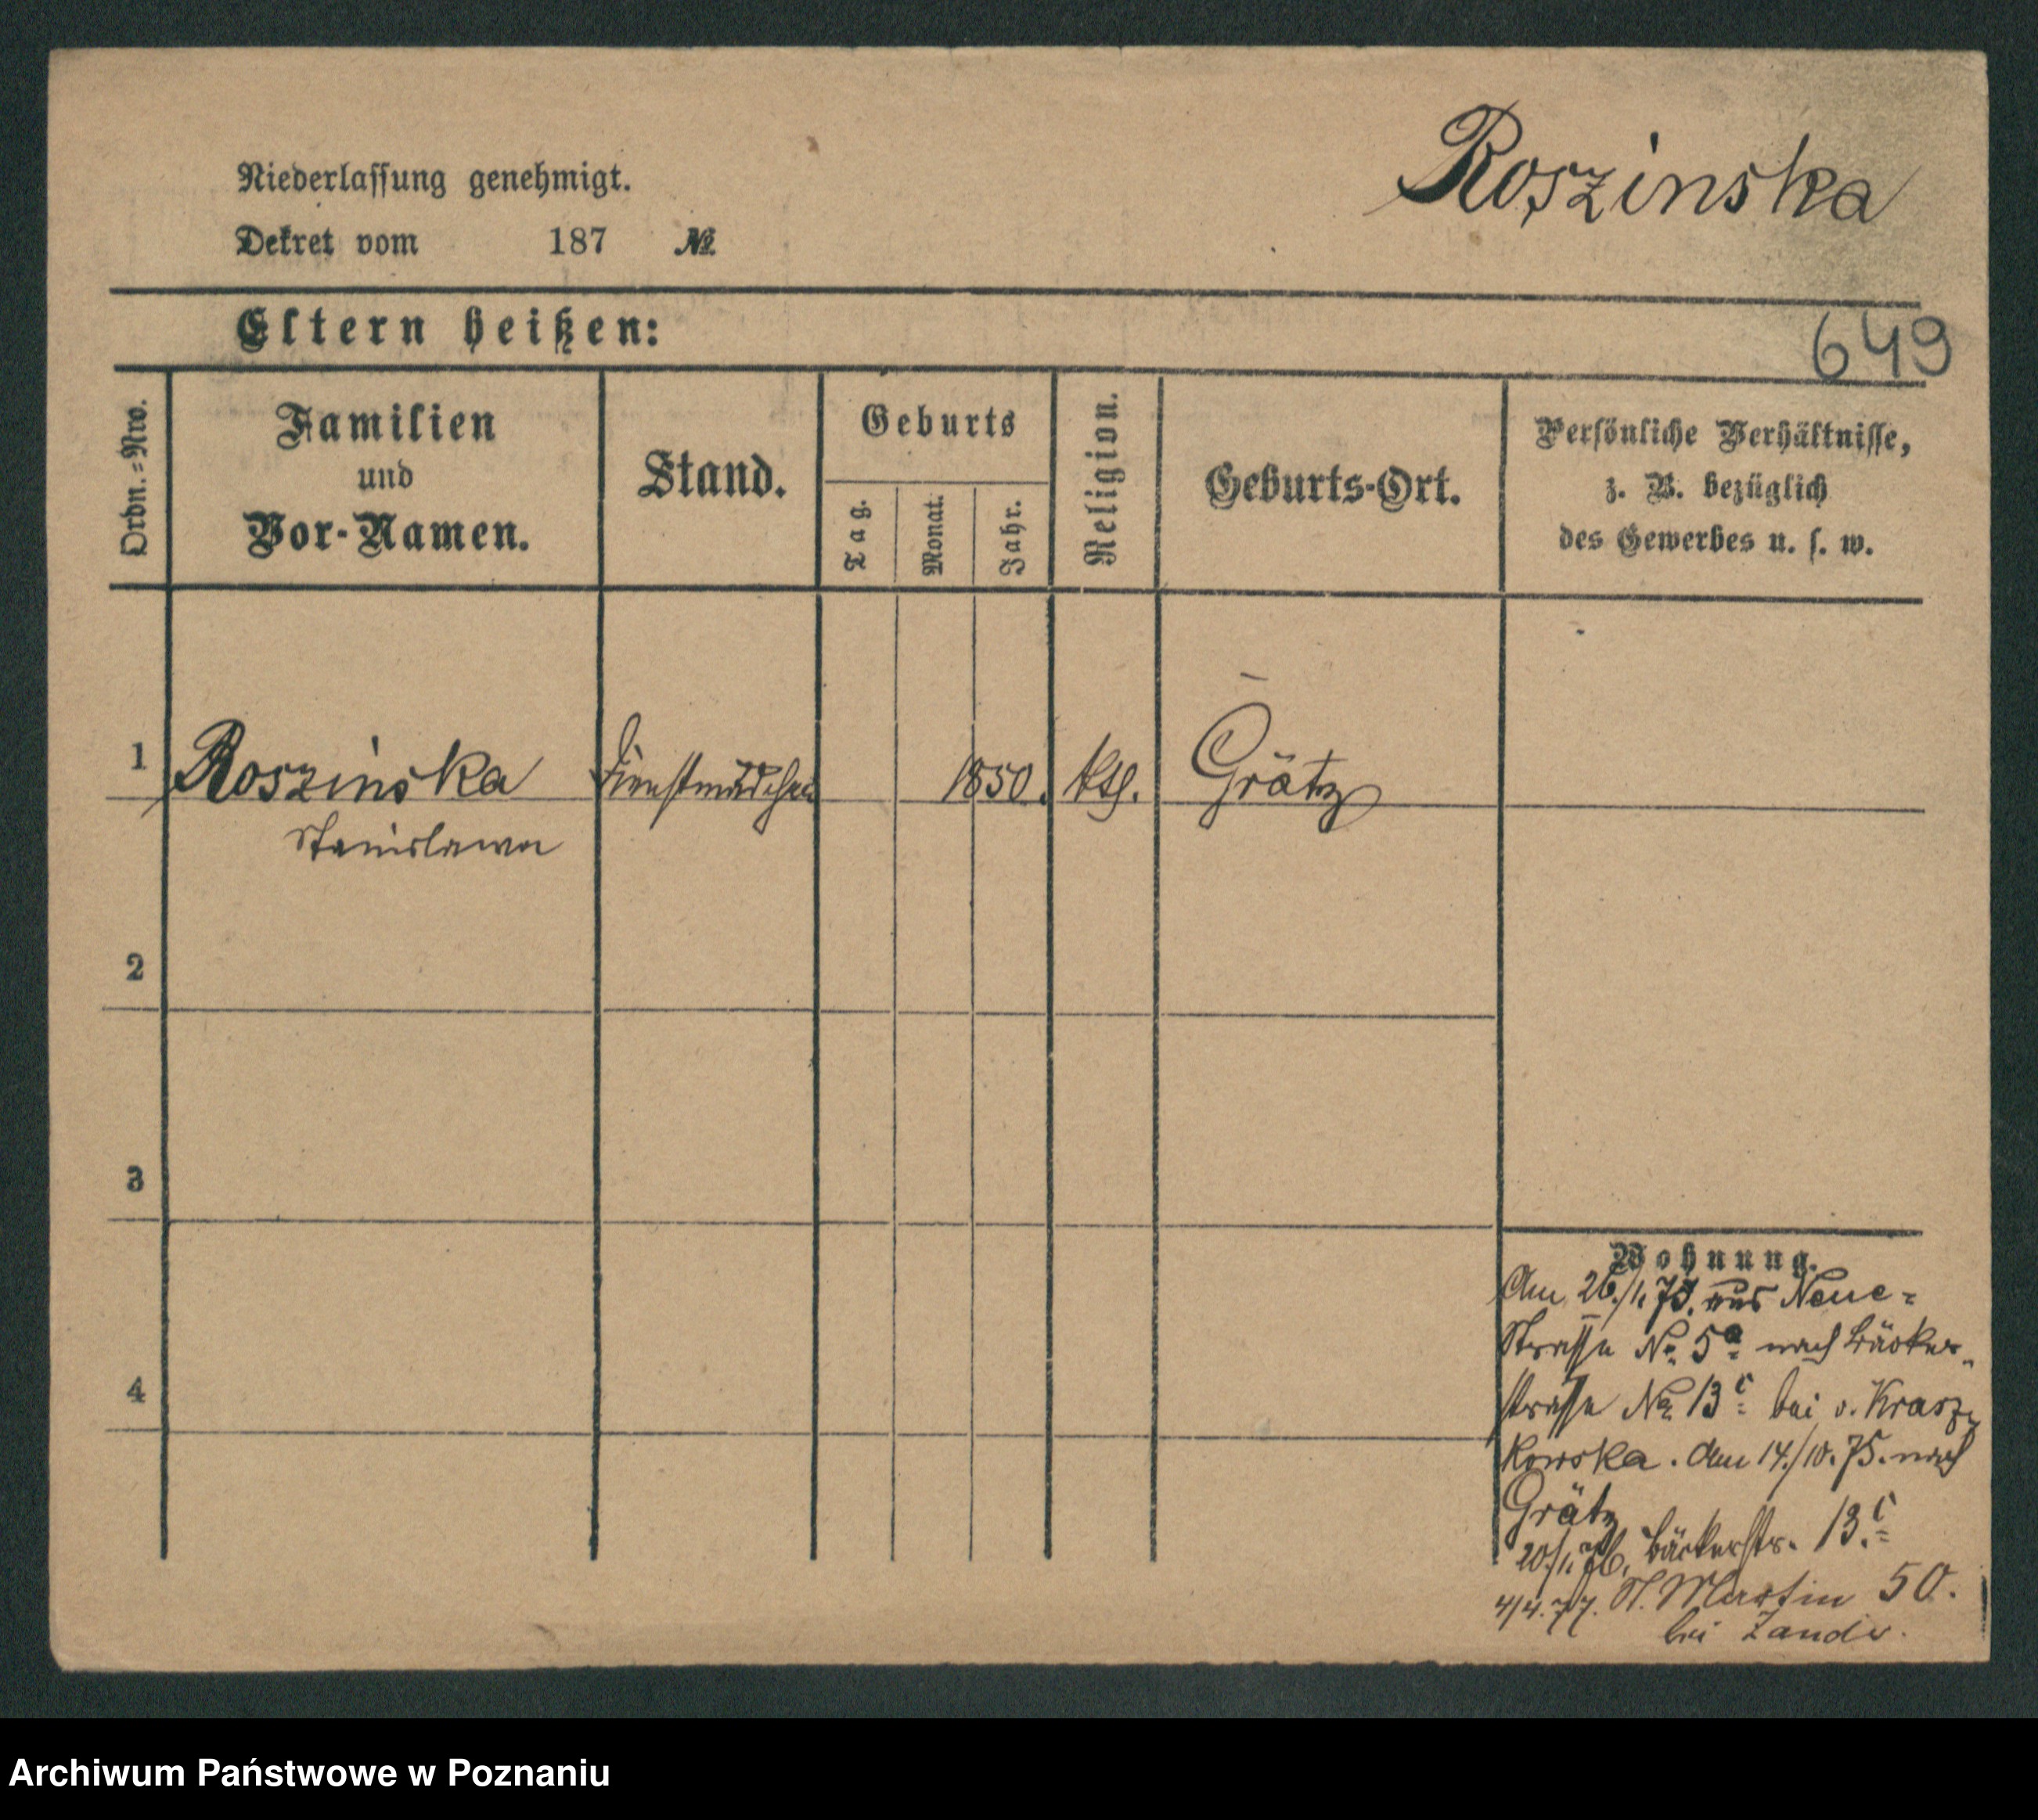 Roszinska
Niederlassung genehmigt.
Dekret vom 187 №
Eltern heißen:
649
Ordn.=Nro.
Familien
und
Vor-Namen.
Stand.
Geburts
Tag.
Monat.
Jahr.
Religion.
Geburts-Ort.
Persönliche Verhältnisse,
z. B. bezüglich
des Gewerbes u. s. w.
1 Roszinska Dienstmädchen 1850. kth. Grätz
Stanislawa
2
3
4
Wohnung.
Am 26./1. 75. aus Neue=
Strasse No. 5a nach Bäcker-
strasse No. 13c bei v. Krasz-
kowska. Am 14./10. 75. nach
Grätz
20./1. 76. Bäckerstr. 13c
4/4. 77. St. Martin 50.
bei Zander.
Archiwum Państwowe w Poznaniu